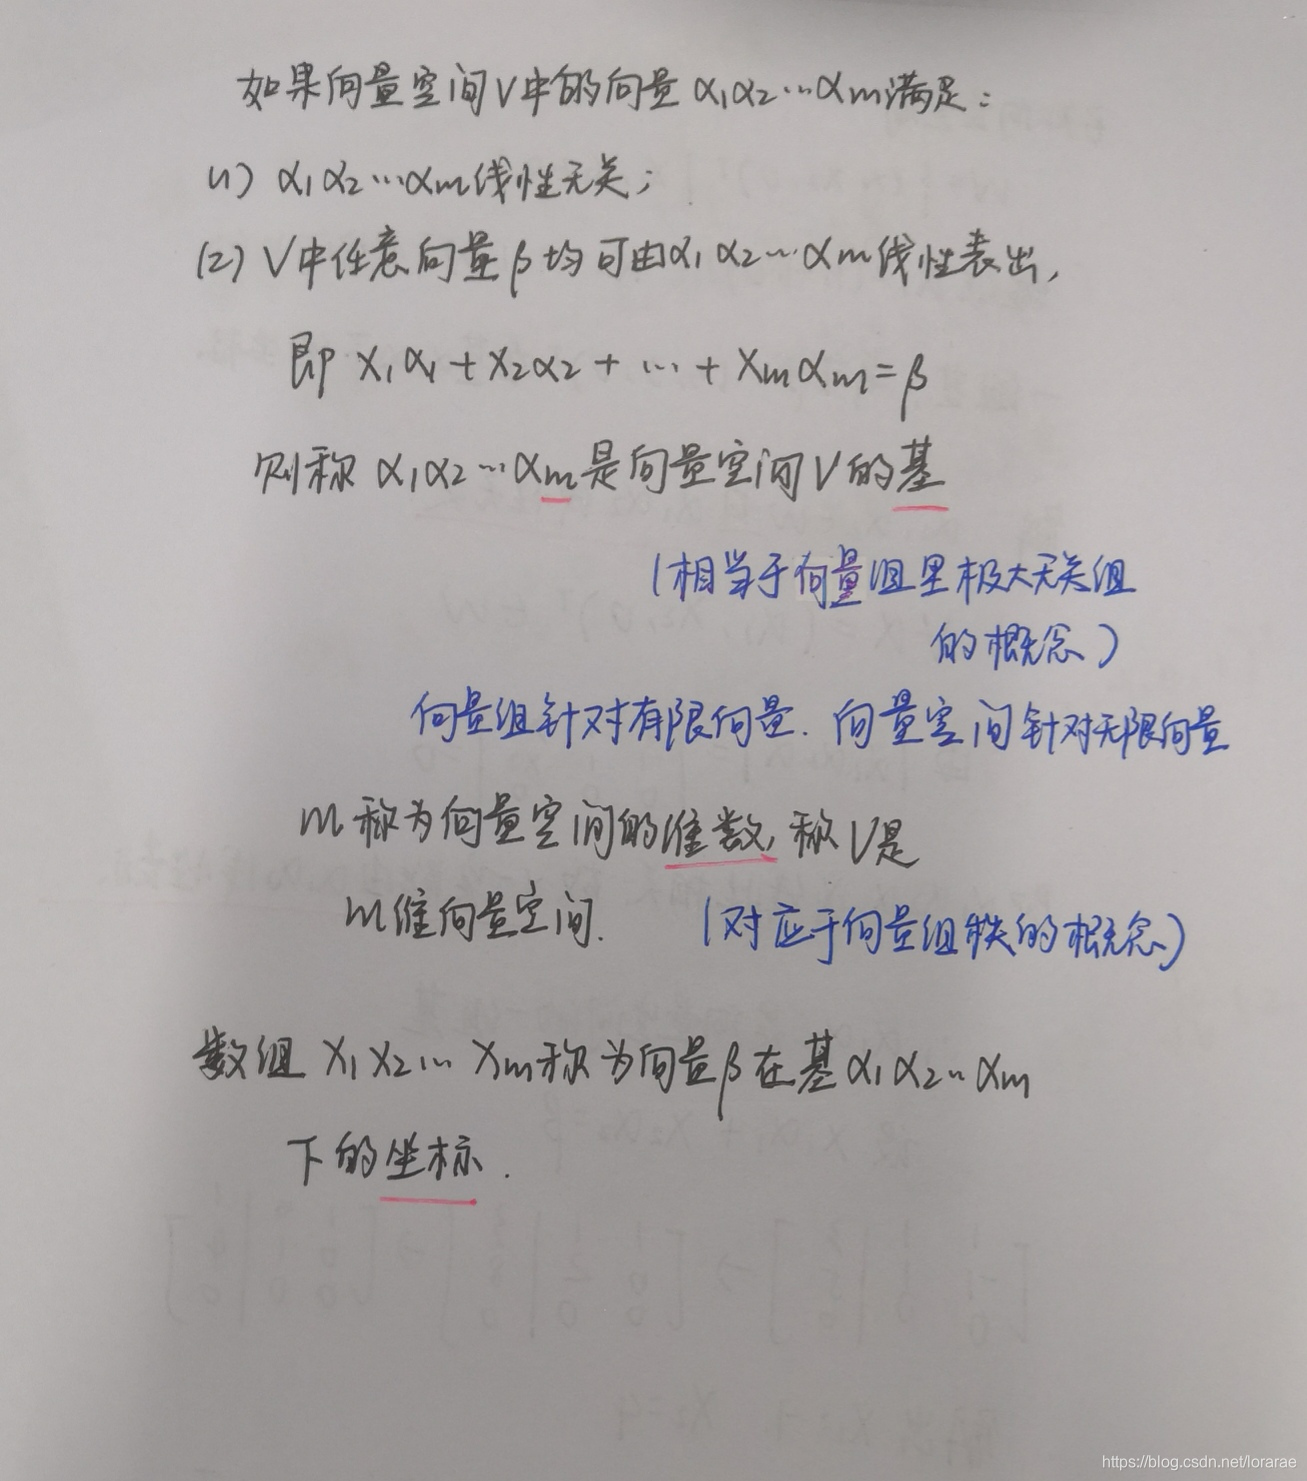 如果向量空间V中的向量 α₁α₂…αm满足：
(1) α₁α₂…αm线性无关；
(2) V中任意向量β均可由α₁α₂…αm线性表出，
即 x₁α₁+x₂α₂+…+xmαm=β
则称 α₁α₂…αm是向量空间V的基
(相当于向量组里极大无关组
的概念)
向量组针对有限向量．向量空间针对无限向量
m称为向量空间的维数，称V是
m维向量空间.
(对应于向量组秩的概念)
数组 x₁x₂…xm称为向量β在基α₁α₂…αm
下的坐标.
https://blog.csdn.net/lorarae